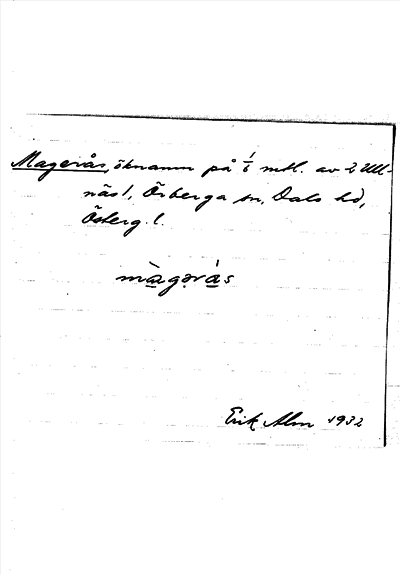 Magerås, öknamn på 1/6 mtl. av 2 Ull-
näs l, Örberga sn, Dals hd,
Österg. l.
màgərás
Erik Alm 1932